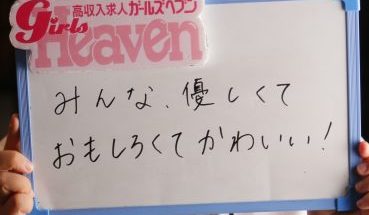 高収入求人ガールズヘブン
Girls
Heaven
みんな、優しくて
おもしろくてかわいい!